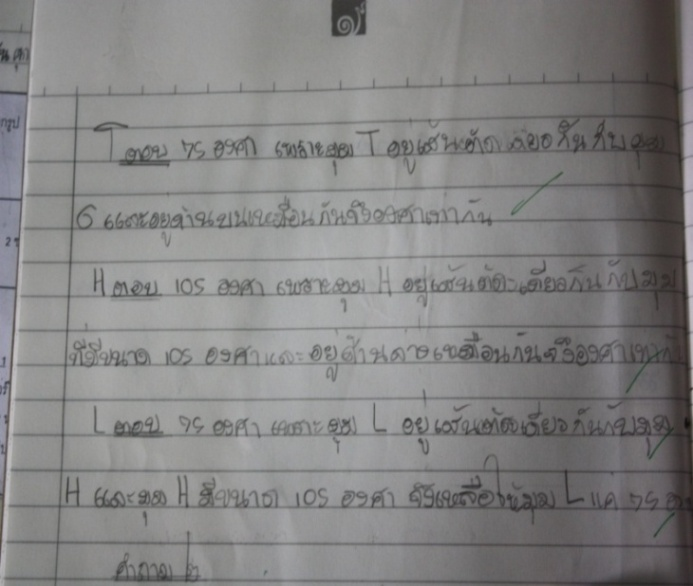 ๑๙
T ตอบ 75 องศา เพราะมุม T อยู่เส้นตัดเดียวกันกับมุม
G และอยู่ด้านบนเหมือนกันจึงองศาเท่ากัน
H ตอบ 105 องศา เพราะมุม H อยู่เส้นตัดเดียวกันกับมุม
ที่มีขนาด 105 องศาและอยู่ด้านล่างเหมือนกันจึงองศาเท่ากั
L ตอบ 75 องศา เพราะมุม L อยู่เส้นตัดเดียวกันกับมุม
H และมุม H มีขนาด 105 องศา จึงเหลือให้มุม L แค่ 75
คำถาม